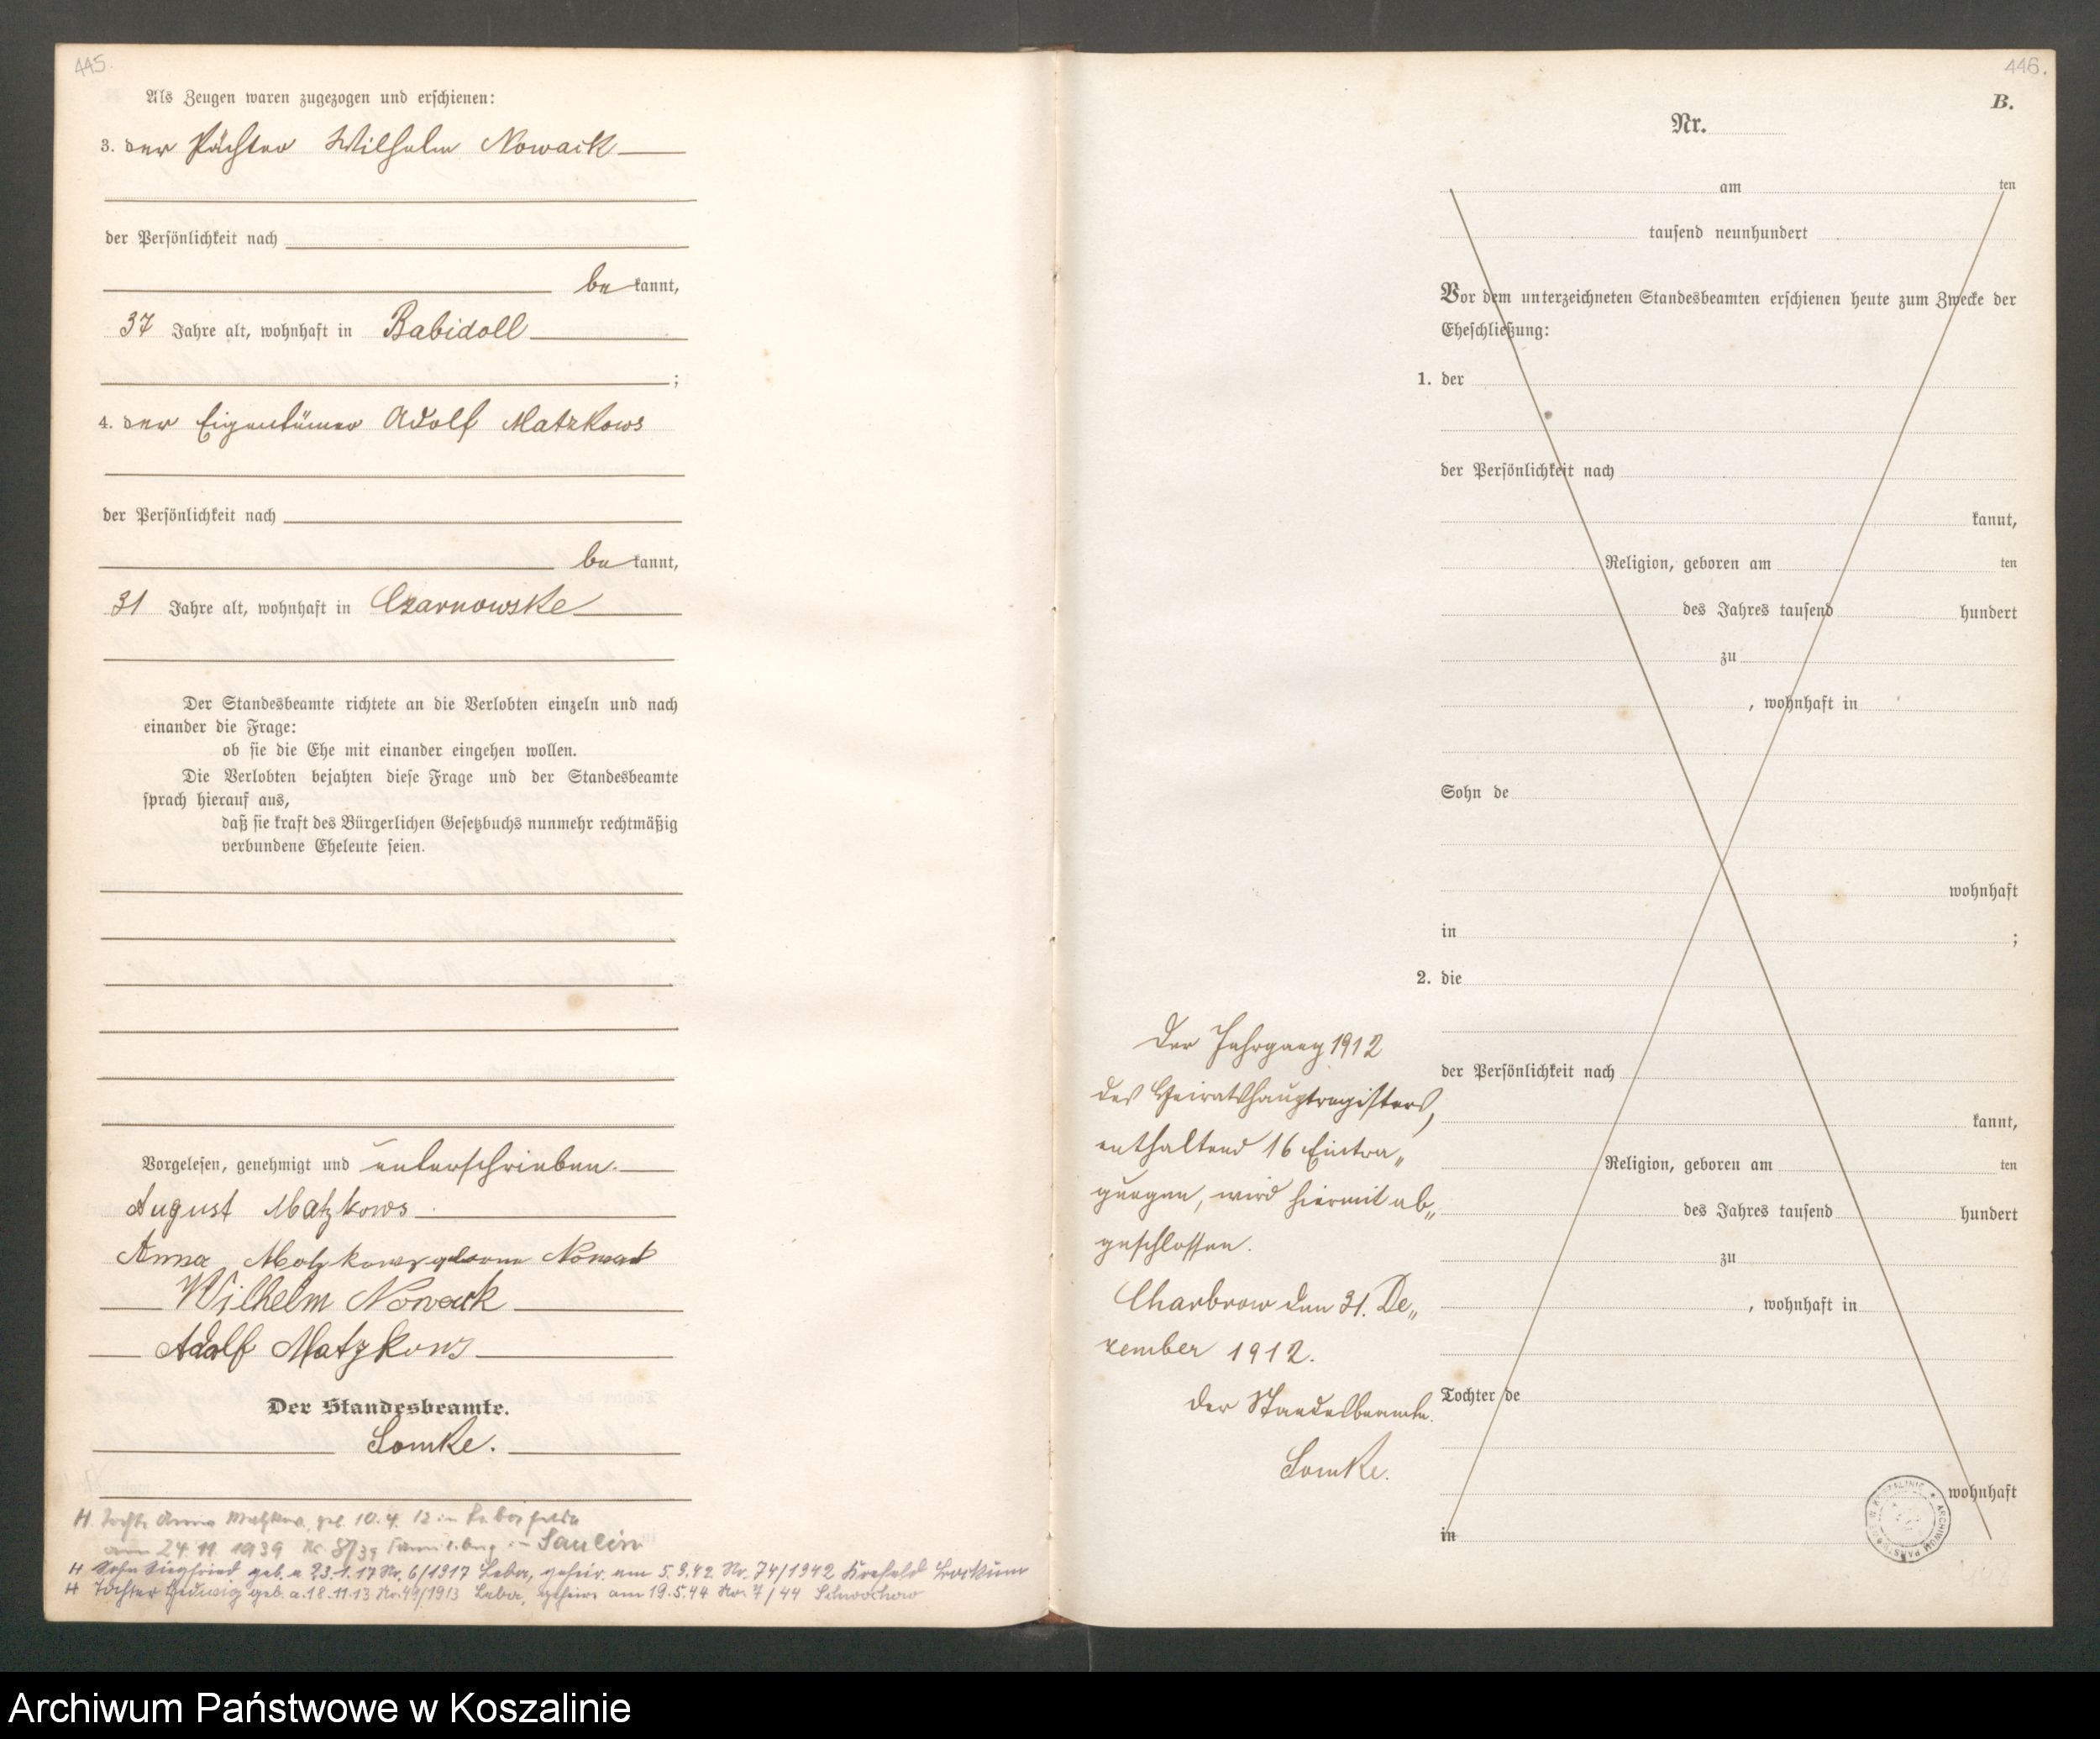 445.
Als Zeugen waren zugezogen und erschienen:
3. der Pächter Wilhelm Nowack
der Persönlichkeit nach
be kannt,
37 Jahre alt, wohnhaft in Babidoll
;
4. der Eigentümer Adolf Matzkows
der Persönlichkeit nach
be kannt,
31 Jahre alt, wohnhaft in Czarnowske
Der Standesbeamte richtete an die Verlobten einzeln und nach
einander die Frage:
ob sie die Ehe mit einander eingehen wollen.
Die Verlobten bejahten diese Frage und der Standesbeamte
sprach hierauf aus,
daß sie kraft des Bürgerlichen Gesetzbuchs nunmehr rechtmäßig
verbundene Eheleute seien.
Vorgelesen, genehmigt und unterschrieben.
August Matzkows
Anna Matzkows geborene Nowack
Wilhelm Nowack
Adolf Matzkows
Der Standesbeamte.
Lomke.
H. Tochter Anna Matzkows, geb. 10. 4. 12 in
am 24. 11. 1939 Nr. 8/39 in Saulin
H Sohn Siegfried geb. a. 23.1.17 Nr. 6/1917 Leba, geheir. am 5.9.42 Nr. 74/1942 Krefeld
H Tochter Hedwig geb. a. 18.11.13 Nr. 49/1913 Leba, geheir. am 19.5.44 No. 7/44 Schwochow
446.
B.
Nr.
am ten
tausend neunhundert
Vor dem unterzeichneten Standesbeamten erschienen heute zum Zwecke der
Eheschließung:
1. der
der Persönlichkeit nach
kannt,
Religion, geboren am ten
des Jahres tausend hundert
zu
, wohnhaft in
Sohn de
wohnhaft
in ;
2. die
der Persönlichkeit nach
kannt,
Religion, geboren am ten
des Jahres tausend hundert
zu
, wohnhaft in
Tochter de
wohnhaft
in
Der Jahrgang 1912
des Heiratshauptregisters,
enthaltend 16 Eintra„
gungen, wird hiermit ab„
geschlossen.
Charbrow den 31. De„
zember 1912.
Der Standesbeamte.
Lomke.
Archiwum Państwowe w Koszalinie